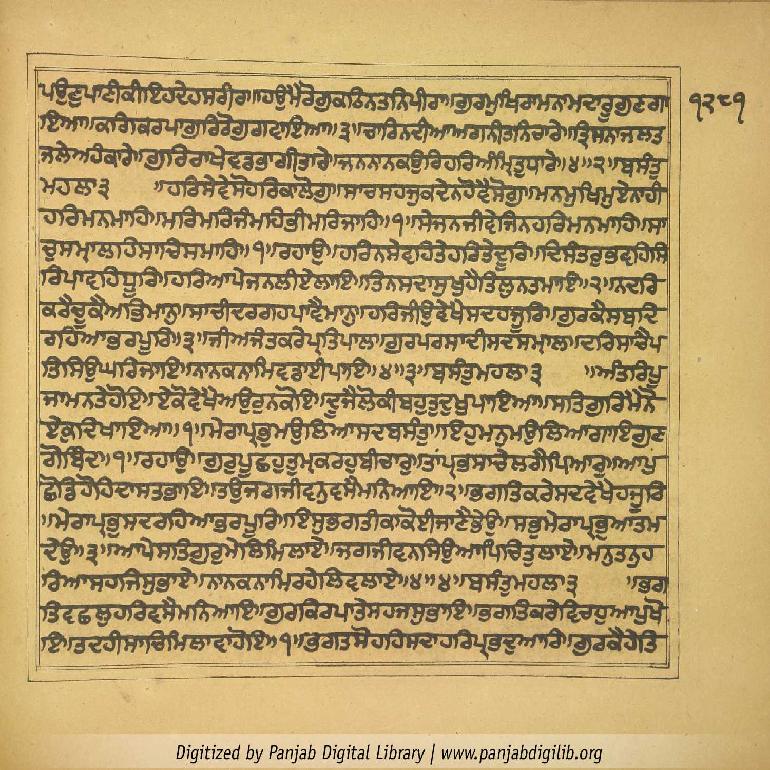 ਪਉਣੁਪਾਣੀਕੀਇਹਦੇਹਸਰੀਰਾ॥ਹਉਮੈਰੋਗੁਕਠਿਨਤਨਿਪੀਰਾ॥ਗੁਰਮੁਖਿਰਾਮਨਾਮਦਾਰੂਗੁਣਗਾ
੧੨੮੧
ਇਆ॥ਕਰਿਕਿਰਪਾਗੁਰਿਰੋਗੁਗਵਾਇਆ॥੩॥ਚਾਰਿਨਦੀਆਅਗਨੀਤਨਿਚਾਰੇ॥ਤ੍ਰਿਸਨਾਜਲਤ
ਜਲੇਅਹੰਕਾਰੇ॥ਗੁਰਿਰਾਖੇਵਡਭਾਗੀਤਾਰੇ॥ਜਨਨਾਨਕਉਰਿਹਰਿਅੰਮ੍ਰਿਤੁਧਾਰੇ॥੪॥੨॥ਬਸੰਤੁ
ਮਹਲਾ੩ ॥ਹਰਿਸੇਵੇਸੋਹਰਿਕਾਲੋਗੁ॥ਸਾਚਸਹਜੁਕਦੇਨਹੋਵੈਸੋਗੁ॥ਮਨਮੁਖਿਮੁਏਨਾਹੀ
ਹਰਿਮਨਮਾਹਿ॥ਮਰਿਮਰਿਜੰਮਹਿਭੀਮਰਿਜਾਹਿ॥੧॥ਸੇਜਨਜੀਵੇਜਿਨਹਰਿਮਨਮਾਹਿ॥ਸਾ
ਚੁਸਮ੍ਹਾਲਹਿਸਾਚਿਸਮਾਹਿ॥੧॥ਰਹਾਉ॥ਹਰਿਨਸੇਵਹਿਤੇਹਰਿਤੇਦੂਰਿ॥ਦਿਸੰਤਰੁਭਵਹਿਸਿ
ਰਿਪਾਵਹਿਧੂਰਿ॥ਹਰਿਆਪੇਜਨਲੀਏਲਾਇ॥ਤਿਨਸਦਾਸੁਖੁਹੈਤਿਲੁਨਤਮਾਇ॥੨॥ਨਦਰਿ
ਕਰੈਚੂਕੈਅਭਿਮਾਨੁ॥ਸਾਚੀਦਰਗਹਪਾਵੈਮਾਨੁ॥ਹਰਿਜੀਉਵੇਖੈਸਦਹਜੂਰਿ॥ਗੁਰਕੈਸਬਦਿ
ਰਹਿਆਭਰਪੂਰਿ॥੩॥ਜੀਅਜੰਤਕਰੇਪ੍ਰਤਿਪਾਲਾ॥ਗੁਰਪਰਸਾਦੀਸਦਸਮ੍ਹਾਲਾ॥ਦਰਿਸਾਚੈਪ
ਤਿਸਿਉਘਰਿਜਾਇ॥ਨਾਨਕਨਾਮਿਵਡਾਈਪਾਏ॥੪॥੩॥ਬਸੰਤੁਮਹਲਾ੩ ॥ਅੰਤਰਿਪੂ
ਜਾਮਨਤੇਹੋਇ॥ਏਕੋਵੇਖੈਅਉਰੁਨਕੋਇ॥ਦੂਜੈਲੋਕੀਬਹੁਤੁਦੁਖੁਪਾਇਆ॥ਸਤਿਗੁਰਿਮੈਨੋ
ਏਕੁਦਿਖਾਇਆ॥੧॥ਮੇਰਾਪ੍ਰਭੁਮਉਲਿਆਸਦਬਸੰਤੁ॥ਇਹੁਮਨੁਮਉਲਿਆਗਾਇਗੁਣ
ਗੋਬਿੰਦ॥੧॥ਰਹਾਉ॥ਗੁਰੁਪੂਛਹੁਤੁਮ੍ਹਕਰਹੁਬੀਚਾਰੁ॥ਤਾਂਪ੍ਰਭਸਾਚੇਲਗੈਪਿਆਰੁ॥ਆਪੁ
ਛੋਡਿਹੋਹਿਦਾਸਤਭਾਇ॥ਤਉਜਗਜੀਵਨੁਵਸੈਮਨਿਆਇ॥੨॥ਭਗਤਿਕਰੇਸਦਵੇਖੈਹਜੂਰਿ
॥ਮੇਰਾਪ੍ਰਭੁਸਦਰਹਿਆਭਰਪੂਰਿ॥ਇਸੁਭਗਤੀਕਾਕੋਈਜਾਣੈਭੇਉ॥ਸਭੁਮੇਰਾਪ੍ਰਭੁਆਤਮ
ਦੇਉ॥੩॥ਆਪੇਸਤਿਗੁਰੁਮੇਲਿਮਿਲਾਏ॥ਜਗਜੀਵਨਸਿਉਆਪਿਚਿਤੁਲਾਏ॥ਮਨੁਤਨੁਹ
ਰਿਆਸਹਜਿਸੁਭਾਏ॥ਨਾਨਕਨਾਮਿਰਹੇਲਿਵਲਾਏ॥੪॥੪॥ਬਸੰਤੁਮਹਲਾ੩ ॥ਭਗ
ਤਿਵਛਲੁਹਰਿਵਸੈਮਨਿਆਇ॥ਗੁਰਕਿਰਪਾਤੇਸਹਜਸੁਭਾਇ॥ਭਗਤਿਕਰੇਵਿਚਹੁਆਪੁਖੋ
ਇ॥ਤਦਹੀਸਾਚਿਮਿਲਾਵਾਹੋਇ॥੧॥ਭਗਤਸੋਹਹਿਸਦਾਹਰਿਪ੍ਰਭਦੁਆਰਿ॥ਗੁਰਕੈਹੇਤਿ
Digitized by Panjab Digital Library | www.panjabdigilib.org